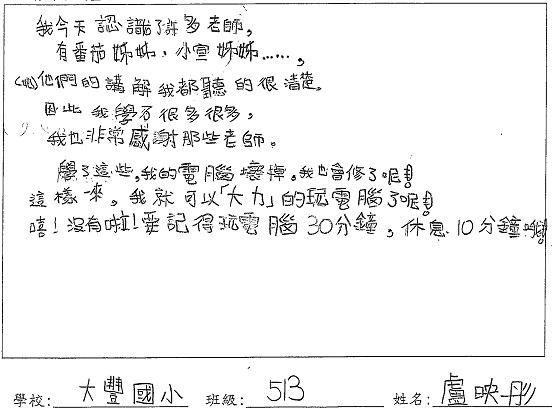 我今天認識了許多老師,
有番茄姊姊、小宣姊姊……,
他們的講解我都聽的很清楚。
因此我學了很多很多,
我也非常感謝那些老師。
學了這些,我的電腦壞掉,我也會修了呢!
這樣一來,我就可以「大力」的玩電腦了呢!
嘻!沒有啦!要記得玩電腦30分鐘,休息10分鐘哦!
學校: 大豐國小 班級: 513 姓名: 盧映彤